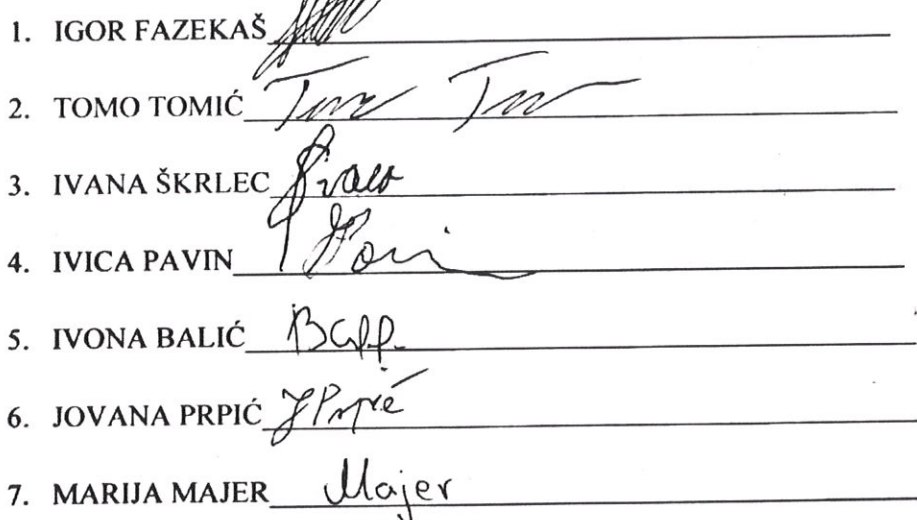 1. IGOR FAZEKAŠ
2. TOMO TOMIĆ
3. IVANA ŠKRLEC
4. IVICA PAVIN
5. IVONA BALIĆ
6. JOVANA PRPIĆ JPrpić
7. MARIJA MAJER Majer